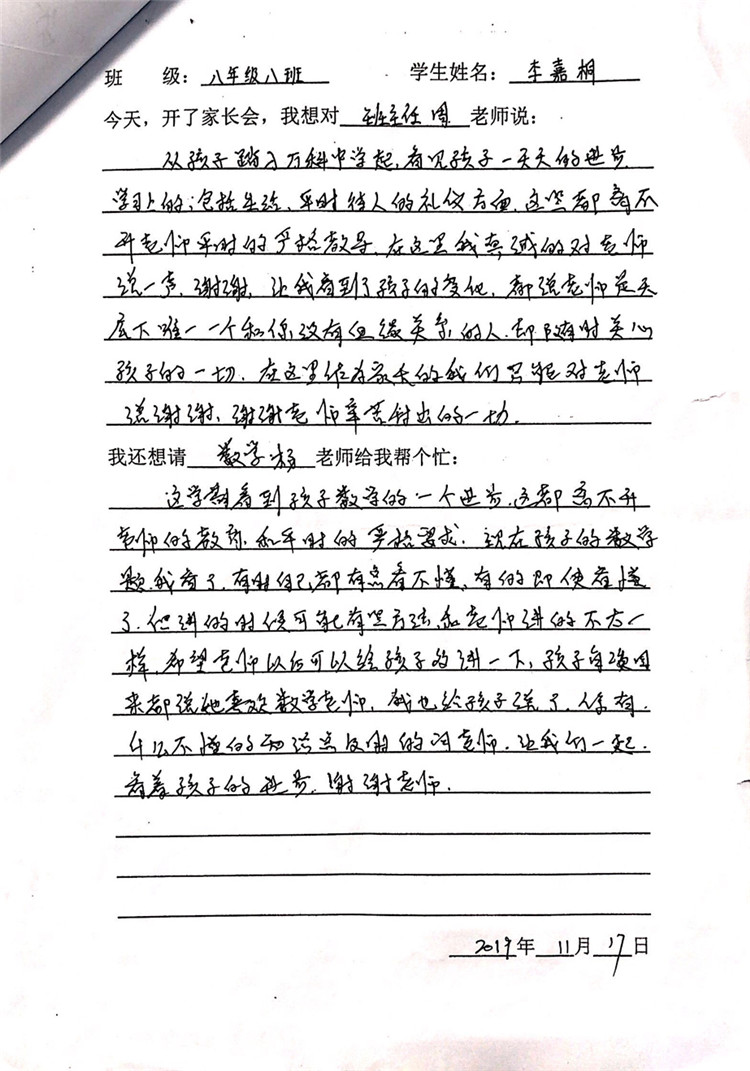 班 级：八年级八班 学生姓名：李嘉桐
今天，开了家长会，我想对 班主任周 老师说：
从孩子踏入万科中学起，看见孩子一天天的进步
学习上的；包括生活、平时待人的礼仪方面，这些都离不
开老师平时的严格教导，在这里我真诚的对老师
说一声，谢谢，让我看到了孩子的变化，都说老师是天
底下唯一一个和你没有血缘关系的人，却随时关心
孩子的一切，在这里作为家长的我们只能对老师
说谢谢，谢谢老师辛苦付出的一切。
我还想请 数学杨 老师给我帮个忙：
这学期看到孩子数学的一个进步，这都离不开
老师的教育，和平时的严格要求，现在孩子的数学
题，我看了，有时自己都有点看不懂，有的即使看懂
了，但讲的时候可能有些方法和老师讲的不太一
样，希望老师以后可以给孩子多讲一下，孩子每次回
来都说她喜欢数学老师，我也给孩子说了，你有
什么不懂的知识点及时的问老师，让我们一起
看着孩子的进步，谢谢老师。
2019年 11月 17日